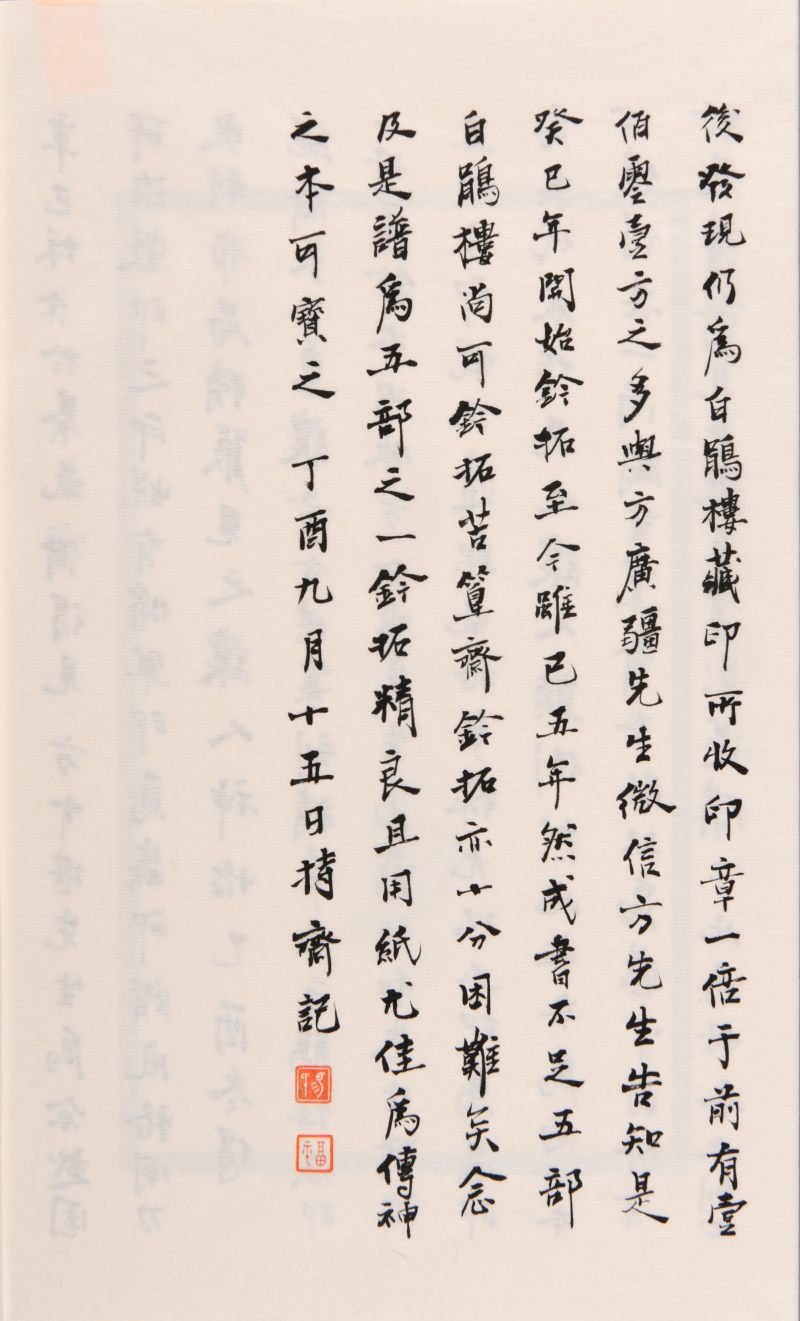 後發現仍為白鵑樓藏印所收印章一倍于前有壹
佰零壹方之多與方廣疆先生微信方先生告知是
癸巳年開始鈐拓至今雖已五年然成書不足五部
白鵑樓尚可鈐拓若簠齋鈐拓亦十分困難矣念
及是譜為五部之一鈐拓精良且用紙尤佳為傳神
之本可寶之丁酉九月十五日持齋記
楊
福